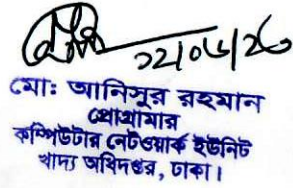 ০২/০৬/২৬
মো: আনিসুর রহমান
প্রোগ্রামার
কম্পিউটার নেটওয়ার্ক ইউনিট
খাদ্য অধিদপ্তর, ঢাকা।